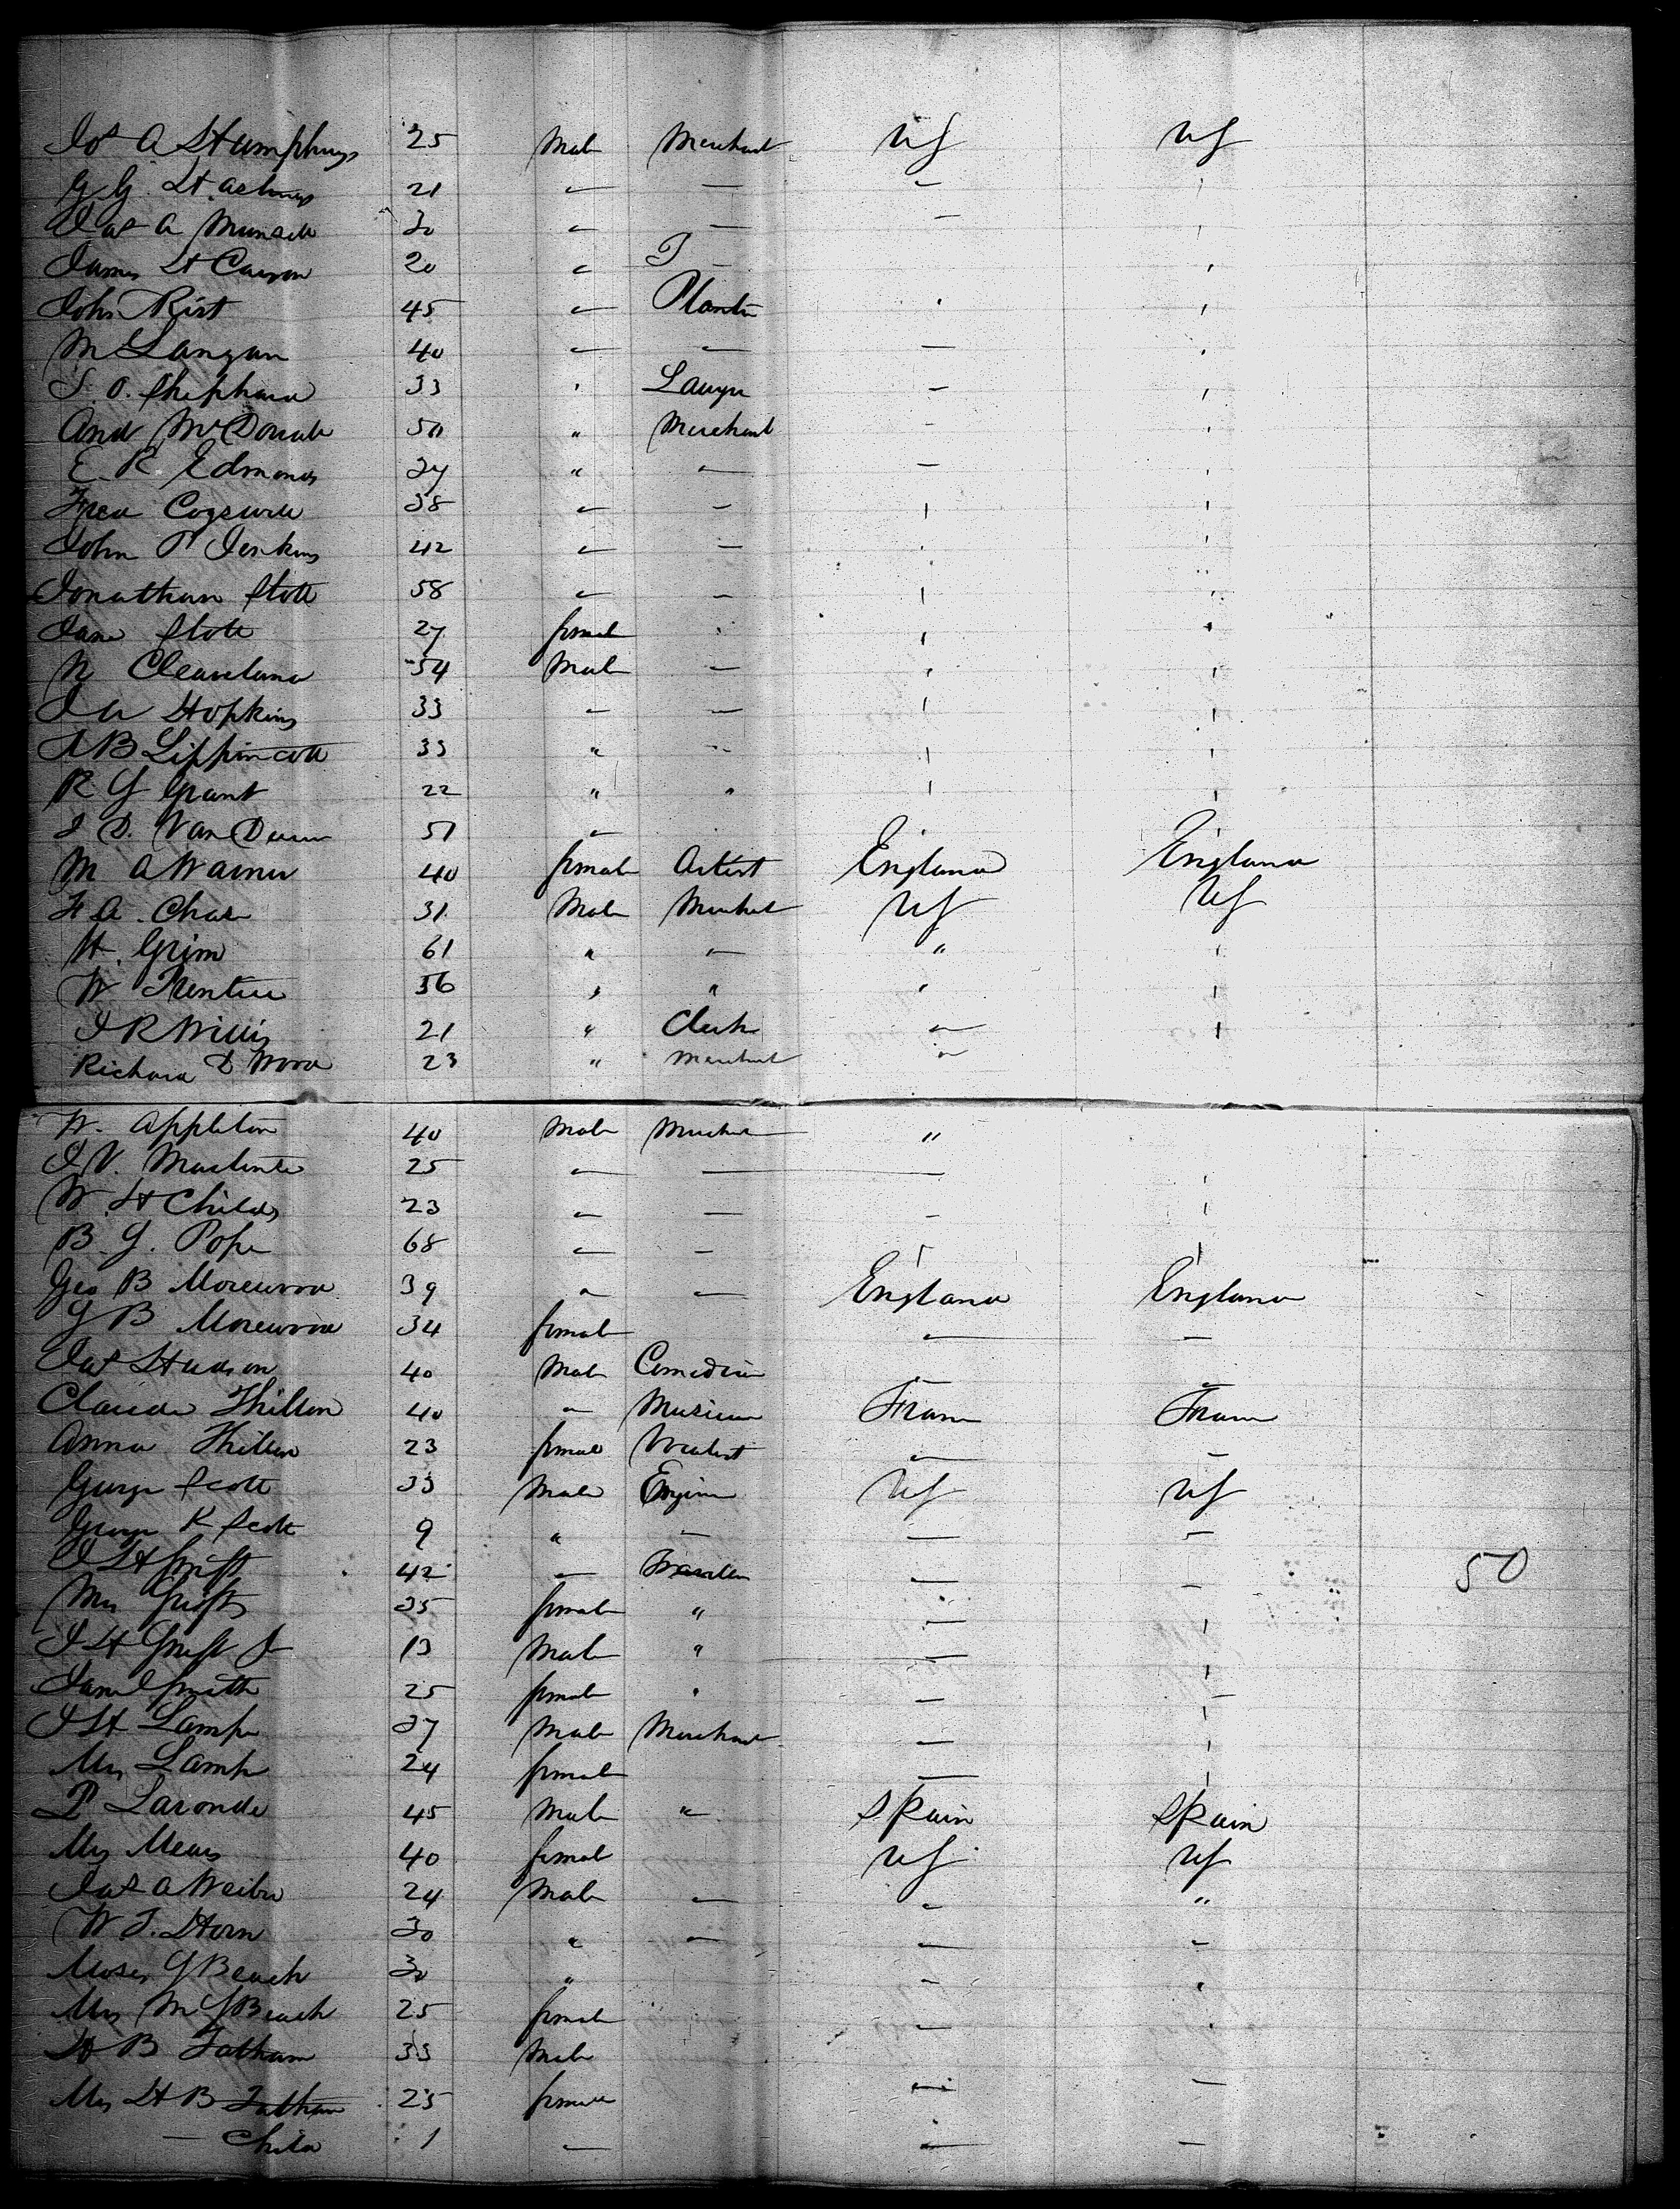 Jos A Humphreys 25 Male Merchant US US
G G Hastings 21 " — — '
Jas A Munsell 30 " — — '
James H Carson 20 " — '
John Rist 45 " Planter ' '
M Langan 40 " — — '
S. O. Shephard 33 ' Lawyer — '
And McDonald 50 " Merchant — '
E. R. Edmonds 27 " — — '
Fred Cogswell 38 " — ' '
John P Jenkins 42 " — ' '
Jonathan Stott 58 " — ' '
Jane Stott 27 female ' '
N Cleaveland 54 Male — ' '
J A Hopkins 33 " — ' '
A B Lippincott 33 " — ' '
R G Grant 22 " " ' '
J D. Van Duser 51 "
M A Warner 40 female Artist England England
F A. Chase 31 Male Merchant US US
H. Grim 61 " — " '
W Prentice 36 " " " '
J R Willis 21 " Clerk " '
Richard D Wood 23 " Merchant "
W. Appleton 40 Male Merchant "
J V. 25 " — —
W. H Childs 23 " — — '
B. G. Pope 68 " — ' '
Geo B Morewood 39 " — England England
G B Morewood 34 female — —
Jas Hudson 40 Male Comedian
Claude Thillon 40 " Musician France France
Anna Thillon 23 female Vocalist — —
George Scott 33 Male Engineer US US
George K Scott 9 " — — —
J H Swift 42 — Traveller — — 50
Mrs Swift 35 female " — '
J H Swift Jr 13 Male " — '
Jane Smith 25 female " — —
J H Lamp 37 Male Merchant — '
Mrs Lamp 24 female — '
P Laronde 45 Male " Spain Spain
Mrs Mears 40 female US US
Jas A 24 Male — " "
W J. Horn 30 " — — —
Moses Y Beach 30 " — "
Mrs M Y Beach 25 female — '
H B Tatham 33 Male
Mrs H B Tatham 25 female — —
— Child 1 — — —